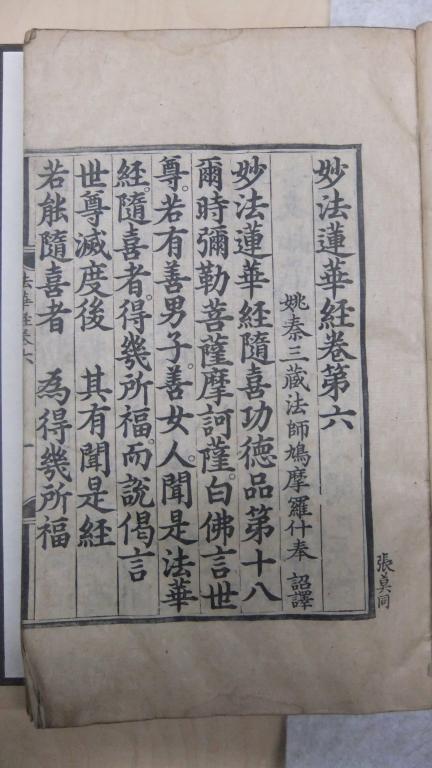 妙法蓮華經卷第六
姚秦三藏法師鳩摩羅什奉 詔譯
妙法蓮華經隨喜功德品第十八
爾時彌勒菩薩摩訶薩。白佛言世
尊。若有善男子。善女人。聞是法華
經。隨喜者。得幾所福。而說偈言
世尊滅度後 其有聞是經
若能隨喜者 為得幾所福
法華經卷六 一
張莫同